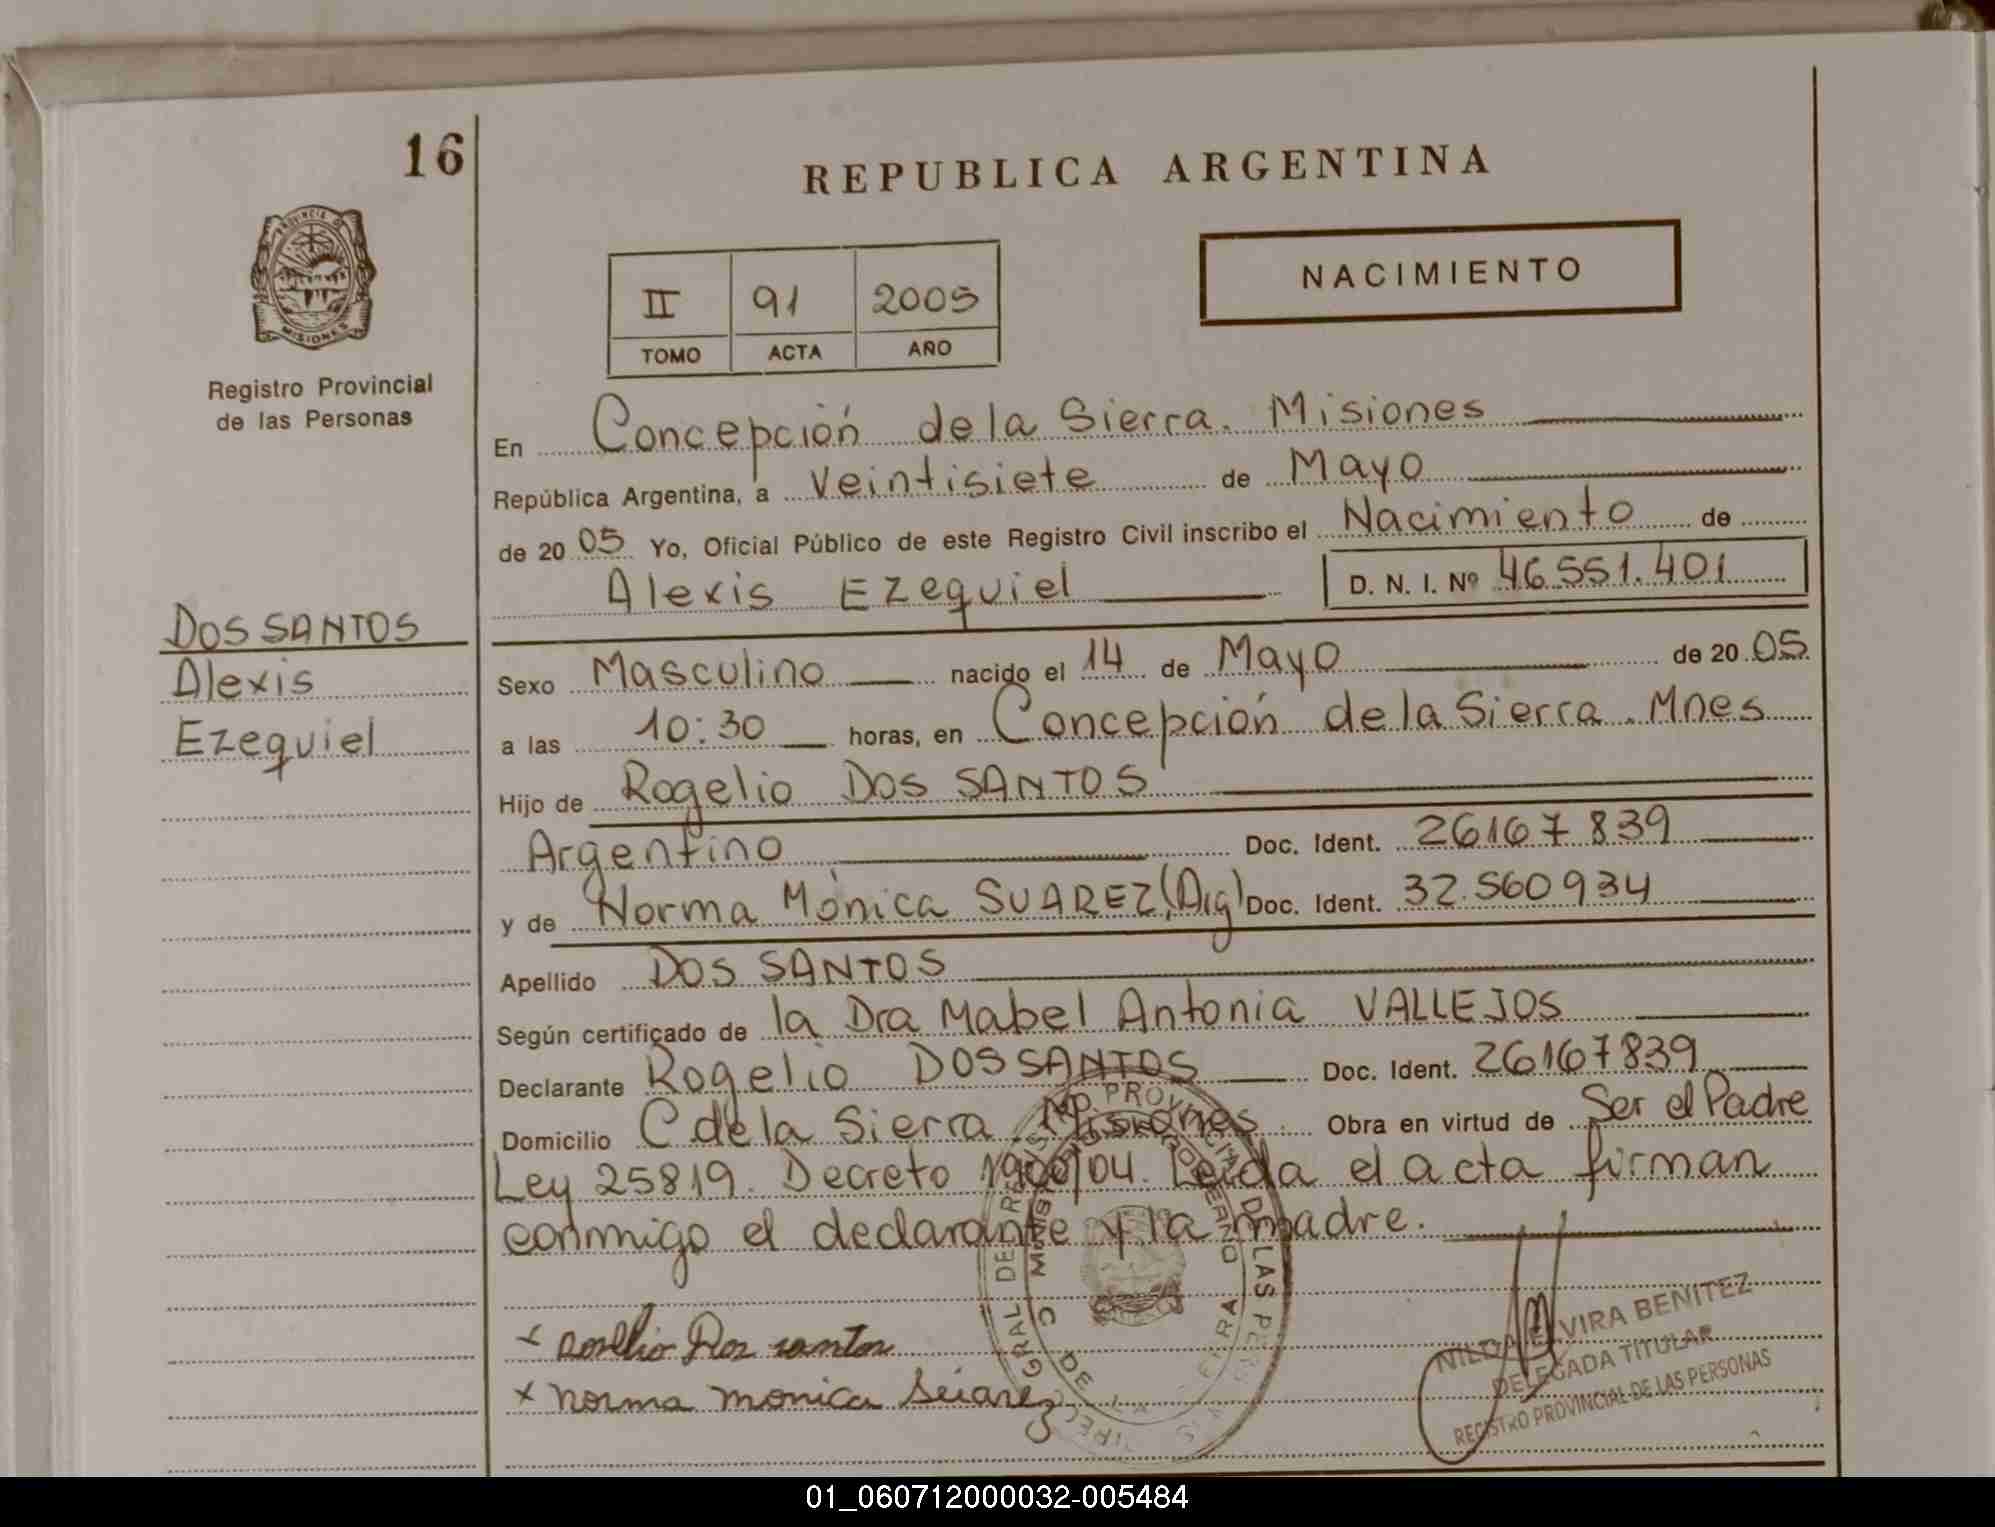 16
REPUBLICA ARGENTINA
PROVINCIA DE
MISIONES
Registro Provincial
de las Personas
II 91 2005
TOMO ACTA AÑO
NACIMIENTO
En Concepción de la Sierra. Misiones
República Argentina, a Veintisiete de Mayo
de 20 05 Yo, Oficial Público de este Registro Civil inscribo el Nacimiento de
Alexis Ezequiel D. N. I. Nº 46.551.401
DOS SANTOS
Alexis
Ezequiel
Sexo Masculino nacido el 14 de Mayo de 20 05
a las 10:30 horas, en Concepción de la Sierra. Mnes
Hijo de Rogelio DOS SANTOS
Argentino Doc. Ident. 26167839
y de Norma Mónica SUAREZ (Arg) Doc. Ident. 32.560934
Apellido DOS SANTOS
Según certificado de la Dra Mabel Antonia VALLEJOS
Declarante Rogelio DOS SANTOS Doc. Ident. 26167839
Domicilio C de la Sierra. Misiones. Obra en virtud de Ser el Padre
Ley 25819. Decreto 1900/04. Leida el acta firman
conmigo el declarante y la madre.
x Dos santos
x norma monica Súarez
NILDA ELVIRA BENITEZ
DELEGADA TITULAR
REGISTRO PROVINCIAL DE LAS PERSONAS
01_060712000032-005484